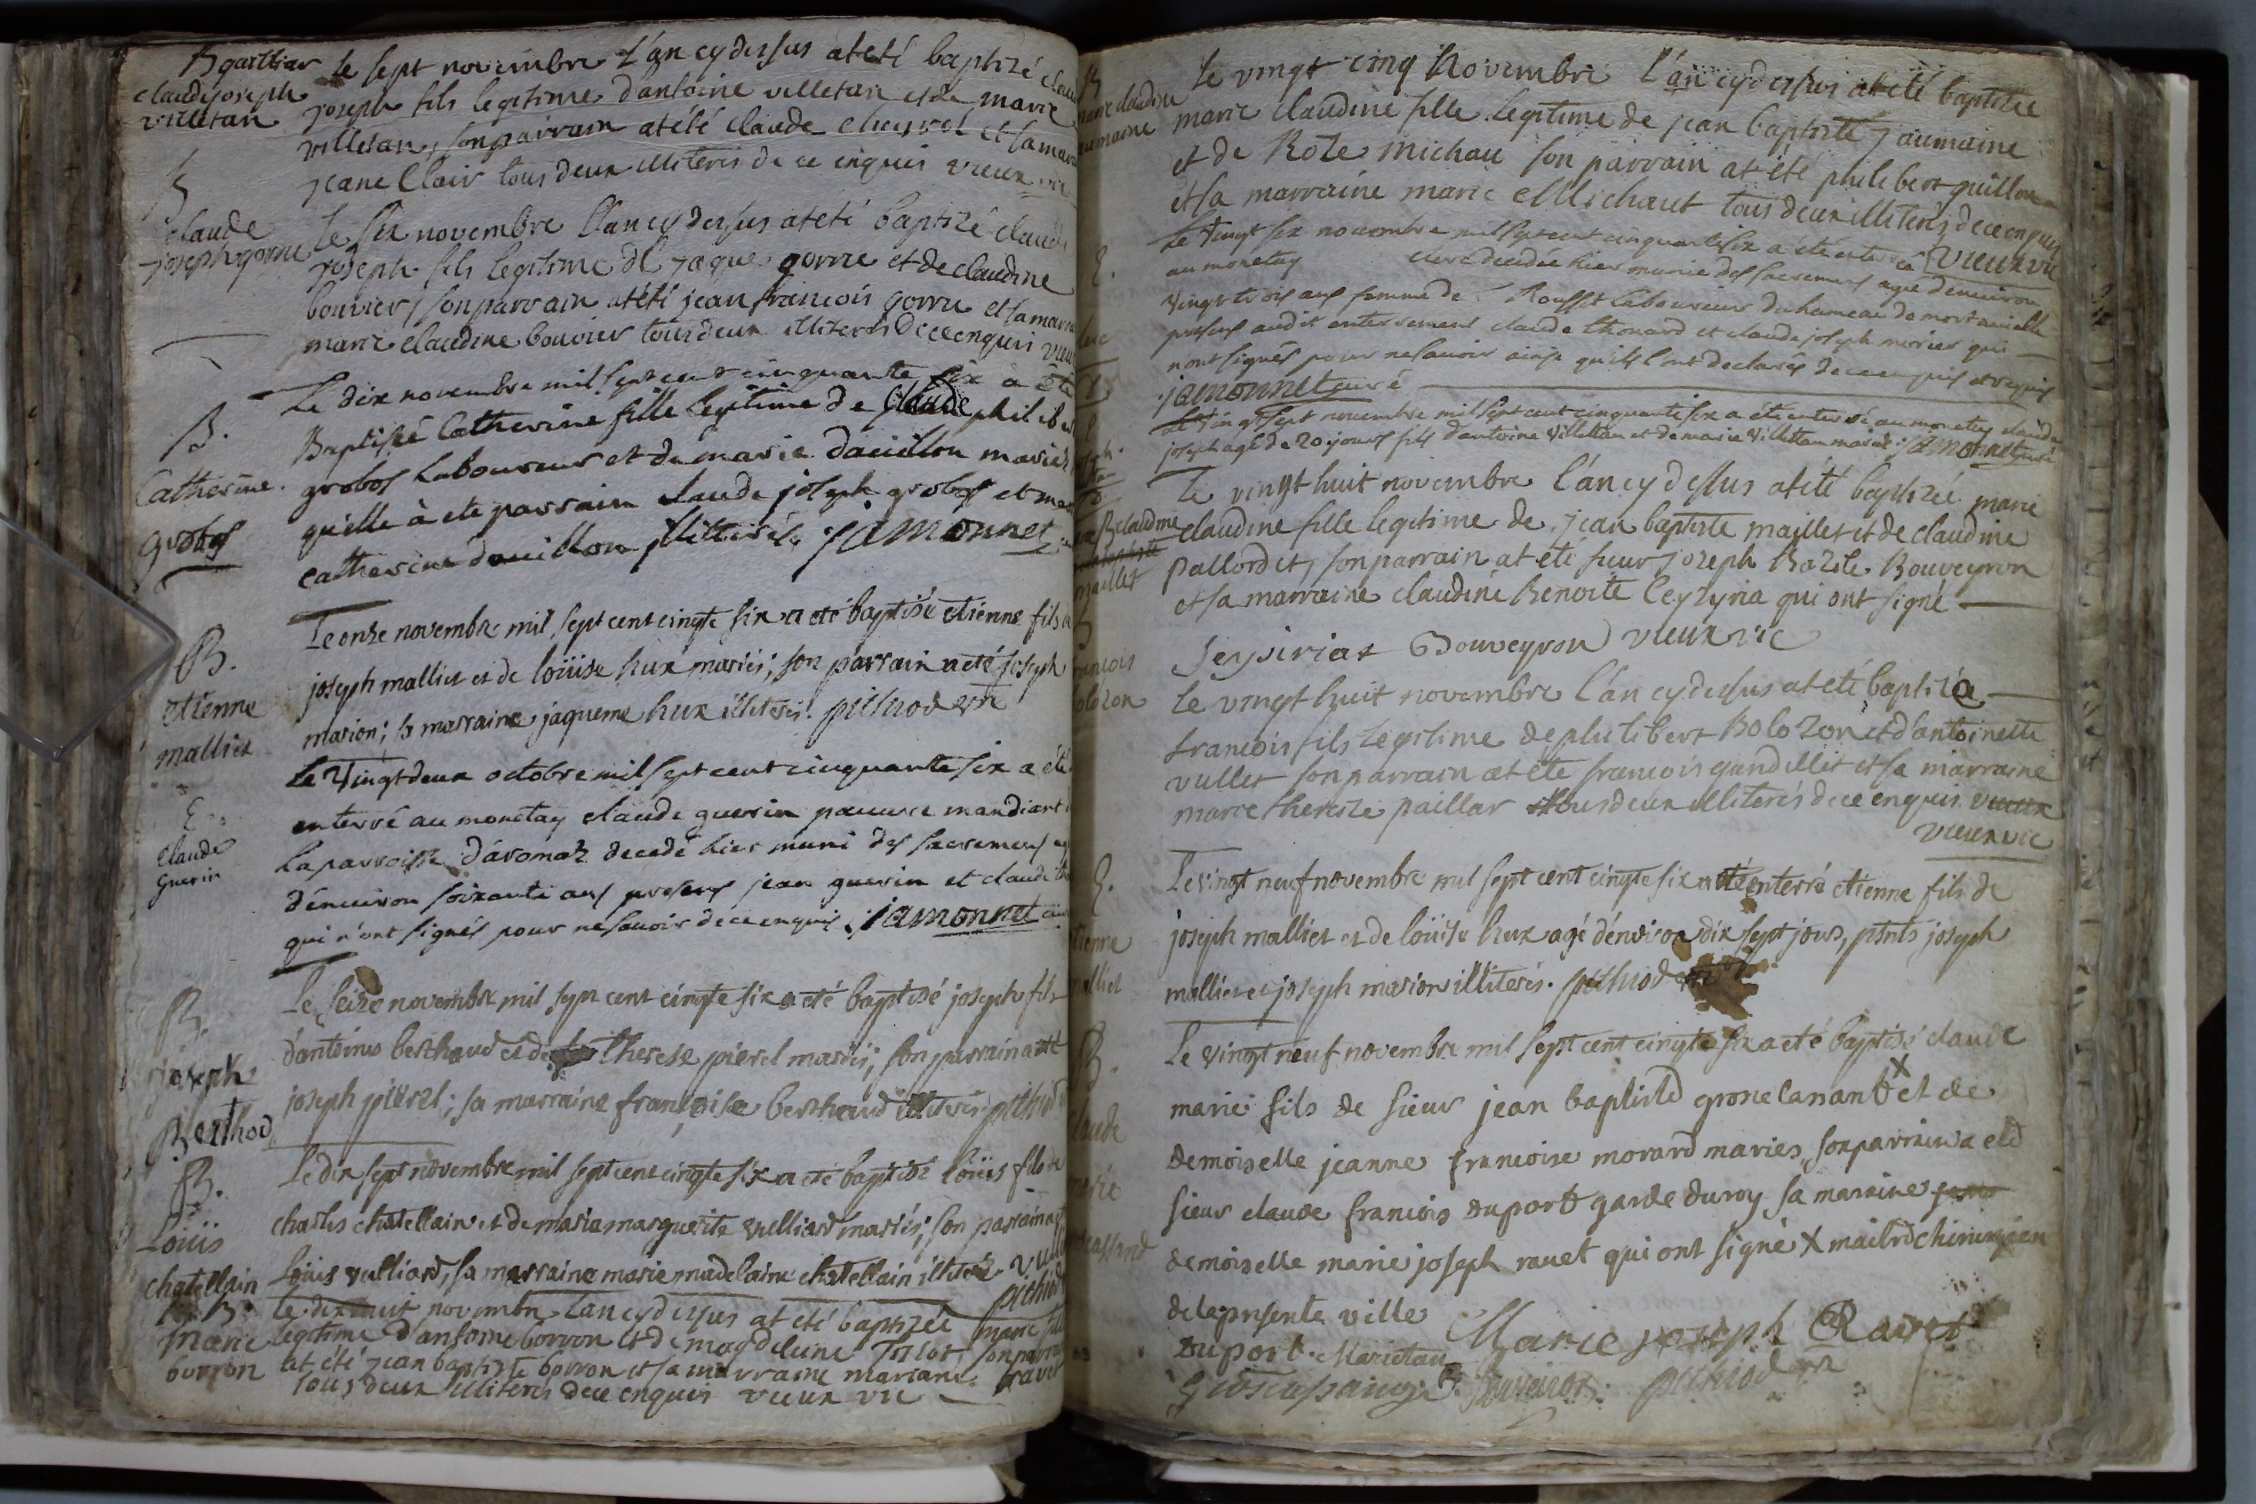 B
claude joseph
villetan
le sept novembre l'an cydessus at eté baptizé
joseph fils legitime d'antoine villetan et de marie
villetan, son parrain at été claude et sa
jeane Clair tous deux illiteris de ce enquis vieux vic
B
claude
joseph gorne
Le six novembre l'an cydessus at eté baptizé claude
joseph fils legitime de jaque gorne et de claudine
bouvier, son parrain at été jean francois gorru et sa
marie claudine bouvier tous deux illiterés de ce enquis
B.
Catherine
grobos
Le dix novembre mil sept cent cinquante six a été
Baptisée Catherine fille legitime de claude philibert
grobos Laboureur et de marie dauillon mariés
qu'elle à eté parrain claude joseph grobos et
catherine dauillon illiterés jamonnet
B.
etienne
malliet
Le onze novembre mil sept cent cinqte six a eté baptisé etienne fils
joseph malliet et de loüise hux mariés; son parrain a eté joseph
marion; sa marraine jaqueme hux illiteris. pithiod vre
E
Claude
Guerin
Le Vingt deux octobre mil sept cent cinquante six a été
enterré au monetay claude guerin pauure mandiant
La parroisse d'aromas decedé hier muni des sacremens
d'enuiron soixante ans presens jean guerin et claude
qui n'ont signés pour ne sauoir de ce enquis. jamonnet
B.
joseph
Berthod
Le seize novembre mil sept cent cinqte six a eté baptisé joseph fils
d'antoine berthaud et de therese pierel mariés; son parrain a eté
joseph pierel; sa marraine françoise berthaud illiterés pithiod
B.
Loüis
chatellain
Le dix sept novembre mil sept cent cinqte six a eté baptisé loüis fils de
charles chatellain et de marie marguerite vulliard mariés; son parrain
Loüis vulliard, sa marraine marie madelaine chatellain illiterés
pithiod
B.
marie
borron
le dix huit novembre l'an cydessus at eté baptizée marie fille
legitime d'antoine borron et de magdelene son parrain
at été jean baptiste borron et sa marraine mariane
tous deux illiterés de ce enquis vieux vic
marie claudine
jaumaine
le vingt cinq Novembre l'an cydessus at eté baptizée
marie claudine fille legitime de jean baptiste jaumaine
et de Roze michau son parrain at été philibert guillon
et sa marraine marie Michaut tous deux illiterés de ce enquis
vieux vic
E.
Le Vingt six novembre mil sept cent cinquante six a été enterré
au monetay clerc decedée hier munie des sacremens agée d'enuiron
vingt trois ans femme de Rousset Laboureur du hameau de
presens audit enterrement claude thouard et claude joseph morier qui
n'ont signés pour ne sauoir ainsi qu'ils l'ont declarés de ce enquis et requis
jamonnet curé
Le Vingt sept novembre mil sept cent cinquante six a été enterré au monetay claude
joseph agé de 20 jours fils d'antoine Villettan et de marie Villettan mariés. jamonnet curé
B claudine
maillet
Le vingt huit novembre l'an cydessus at été baptizée marie
claudine fille legitime de jean baptiste maillet et de claudine
Pallordet, son parrain at eté sieur joseph Bazile Bouveyron
et sa marraine claudine Benoite Ceyzyria qui ont signé
Seysiriat Bouveyron vieux vic
francois
bolozon
Le vingt huit novembre l'an cydessus at eté baptizé
francois fils legitime de philibert Bolozon et d'antoinette
vullet son parrain at ete francois gandillet et sa marraine
marie therese paillar tous deux illiterés de ce enquis vieux
vieux vic
E.
etienne
malliet
Le vingt neuf novembre mil sept cent cinqte six a eté enterré etienne fils de
joseph malliet et de loüise hux agé d'environ dix sept jours, pnts joseph
malliet et joseph marion illiterés. pithiod vre
B.
claude
marie
Le vingt neuf novembre mil sept cent cinqte six a eté baptisé claude
marie fils de sieur jean baptiste x et de
demoiselle jeanne francoise morard maries, son parrain a eté
sieur claude francois duport garde du roy sa maraine
demoiselle marie joseph ravet qui ont signé x maitre chirurgien
de la presente ville
Marie joseph Ravet
Duport. Marietan
pithiod vre